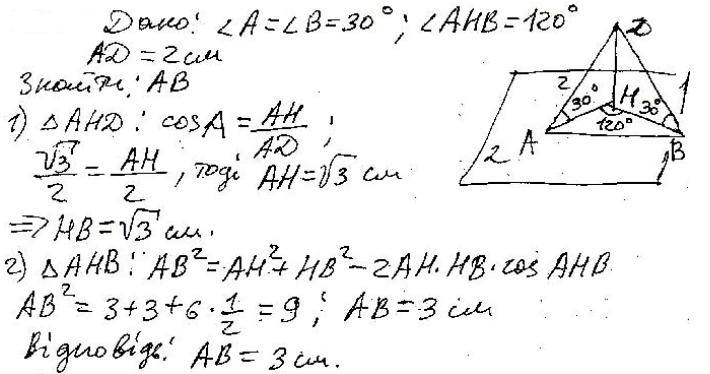 Дано: ∠A = ∠B = 30°; ∠AHB = 120°
AD = 2 см
Знайти: AB
1) △AHD: cosA = AH/AD;
√3/2 = AH/2, тоді AH = √3 см
⇒ HB = √3 см.
2) △AHB: AB² = AH² + HB² − 2AH·HB·cos AHB
AB² = 3 + 3 + 6 · 1/2 = 9; AB = 3 см
Відповідь: AB = 3 см.
D
2
30°
H
30°
120°
A
B
2
1